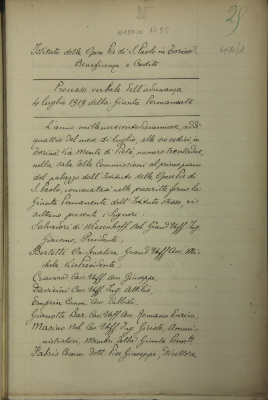 25
25
Istituto delle Opere Pie di S. Paolo in Torino
Beneficenza e Credito
Processo verbale dell'adunanza
4 luglio 1919 della Giunta Permanente
L'anno millenovecentodiciannove, addì
quattro del mese di luglio, alle ore sedici, in
Torino, Via Monte di Pietà, numero trentadue,
nella sala delle Commissioni al primo piano
del palazzo dell'Istituto delle Opere Pie di
S. Paolo, convocatasi nelle prescritte forme la
Giunta Permanente dell'Istituto stesso, ri-
sultano presenti i Signori:
Salvadori di Wiesenhoff Nob. Grand'Uff. Ing.
Giacomo, Presidente,
Bertetti On. Senatore Grand'Uff. Avv. Mi-
chele, Vice Presidente,
Cravosio Cav. Uff. Avv. Giuseppe,
Cav. Uff. Ing. Attilio,
Emprin Comm. Avv. Callisto,
Gianotti Bar. Cav. Uff. Avv. Romano Enrico,
Masino Nob. Cav. Uff. Ing. Ammi-
nistratori, Membri della Giunta
Fabris Comm. Dott. Pier Giuseppe, Direttore